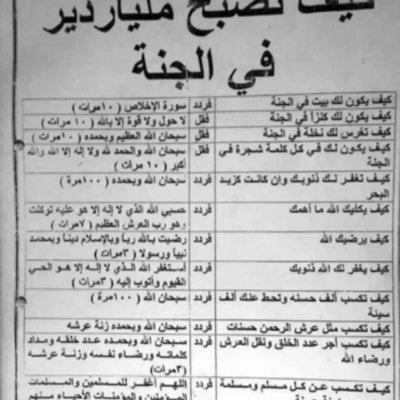 كيف تصبح ملياردير
في الجنة
كيف يكون لك بيت في الجنة فردد سورة الإخلاص ( ١٠ مرات )
كيف يكون لك كنزاً في الجنة فقل لا حول ولا قوة إلا بالله ( ١٠ مرات )
كيف تغرس لك نخلة في الجنة فقل سبحان الله العظيم وبحمده ( ١٠ مرات )
كيف يكون لك في كل كلمة شجرة في الجنة فقل سبحان الله والحمد لله ولا إله إلا الله والله أكبر ( ١٠ مرات )
كيف تغفر لك ذنوبك وإن كانت كزبد البحر فردد سبحان الله وبحمده ( ١٠٠ مرة )
كيف يكفيك الله ما أهمك فردد حسبي الله الذي لا إله إلا هو عليه توكلت وهو رب العرش العظيم ( ٧ مرات )
كيف يرضيك الله فردد رضيت بالله رباً وبالإسلام ديناً وبمحمد نبياً ورسولا ( ٣ مرات )
كيف يغفر لك الله ذنوبك فردد أستغفر الله الذي لا إله إلا هو الحي القيوم وأتوب إليه ( ٣ مرات )
كيف تكسب ألف حسنه وتحط عنك ألف سيئة فردد سبحان الله ( ١٠٠ مرة )
كيف تكسب مثل عرش الرحمن حسنات فردد سبحان الله وبحمده زنة عرشه
كيف تكسب أجر عدد الخلق ونقل العرش ورضاء الله فردد سبحان الله وبحمده عدد خلقه ومداد كلماته ورضاء نفسه وزنة عرشه ( ٣ مرات )
كيف تكسب عن كل مسلم ومسلمة فردد اللهم أغفر للمسلمين والمسلمات المؤمنين والمؤمنات الأحياء منهم